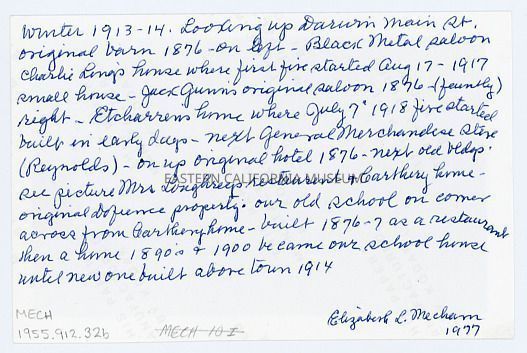 Winter 1913-14. Looking up Darwin Main St.
original barn 1876 - on left - Black Metal saloon
Charlie Long's house where first fire started Aug 17 - 1917
small house - Jack Gunn's original saloon 1876 - (faintly)
right - Etcharrens home where July 7' 1918 fire started
built in early days - next General Merchandise Store
(Reynolds) - on up original hotel 1876 - next old bldgs.
see picture Mrs Loughreys restaurant - Carthery home -
EASTERN CALIFORNIA MUSEUM
original Defience property. our old school on corner
across from Carthery home - built 1876-7 as a restaurant
then a home 1890's & 1900 became our school house
until new one built above town 1914
Elizabeth L. Mecham
1977
MECH
1955.912.32b
MECH 10 I